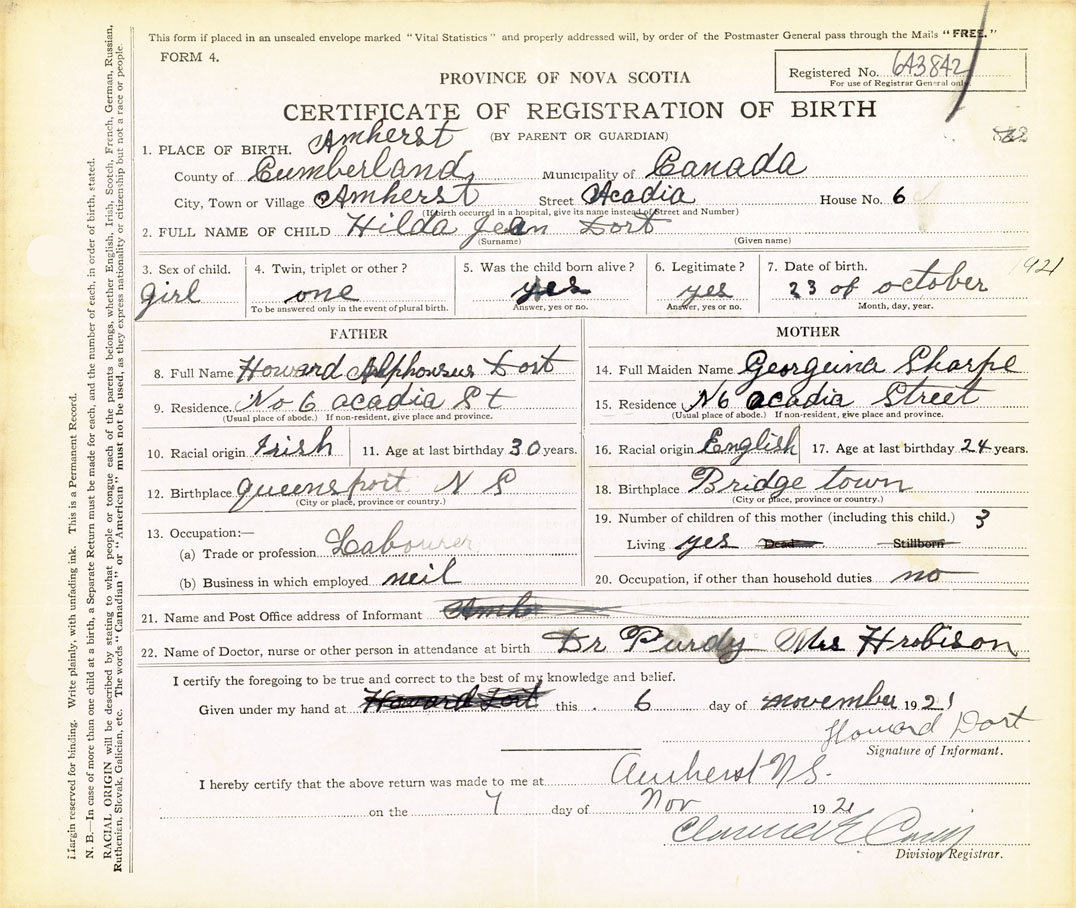 This form if placed in an unsealed envelope marked "Vital Statistics" and properly addressed will, by order of the Postmaster General pass through the Mails "FREE."
FORM 4.
Registered No. 643842
For use of Registrar General only.
PROVINCE OF NOVA SCOTIA
CERTIFICATE OF REGISTRATION OF BIRTH
(BY PARENT OR GUARDIAN)
1. PLACE OF BIRTH. Amherst
County of Cumberland Municipality of Canada
City, Town or Village Amherst Street Acadia House No. 6
(If birth occurred in a hospital, give its name instead of Street and Number)
2. FULL NAME OF CHILD Hilda Jean Dort
(Surname) (Given name)
3. Sex of child. 4. Twin, triplet or other? 5. Was the child born alive? 6. Legitimate? 7. Date of birth. 1921
girl one yes yes 23 of october
To be answered only in the event of plural birth. Answer, yes or no. Answer, yes or no. Month, day, year.
FATHER
8. Full Name Howard Alphonsus Dort
9. Residence. No 6 acadia St
(Usual place of abode.) If non-resident, give place and province.
10. Racial origin Irish 11. Age at last birthday 30 years.
12. Birthplace queensport N S
(City or place, province or country.)
13. Occupation:—
(a) Trade or profession Labourer
(b) Business in which employed neil
MOTHER
14. Full Maiden Name Georgeina Sharpe
15. Residence N6 acadia Street
(Usual place of abode.) If non-resident, give place and province.
16. Racial origin English 17. Age at last birthday 24 years.
18. Birthplace Bridge town
(City or place, province or country.)
19. Number of children of this mother (including this child.) 3
Living yes Dead Stillborn
20. Occupation, if other than household duties no
21. Name and Post Office address of Informant Amh
22. Name of Doctor, nurse or other person in attendance at birth Dr Purdy Mrs Hrobison
I certify the foregoing to be true and correct to the best of my knowledge and belief.
Given under my hand at Howard Dort this 6 day of november 1921
Howard Dort
Signature of Informant.
I hereby certify that the above return was made to me at Amherst N.S.
on the 7 day of Nov 1921
Division Registrar.
Margin reserved for binding. Write plainly, with unfading ink. This is a Permanent Record.
N. B.—In case of more than one child at a birth, a Separate Return must be made for each, and the number of each, in order of birth, stated.
RACIAL ORIGIN will be described by stating to what people or tongue each of the parents belongs, whether English, Irish, Scotch, French, German, Russian,
Ruthenian, Slovak, Galician, etc. The words "Canadian" or "American" must not be used, as they express nationality or citizenship but not a race or people.